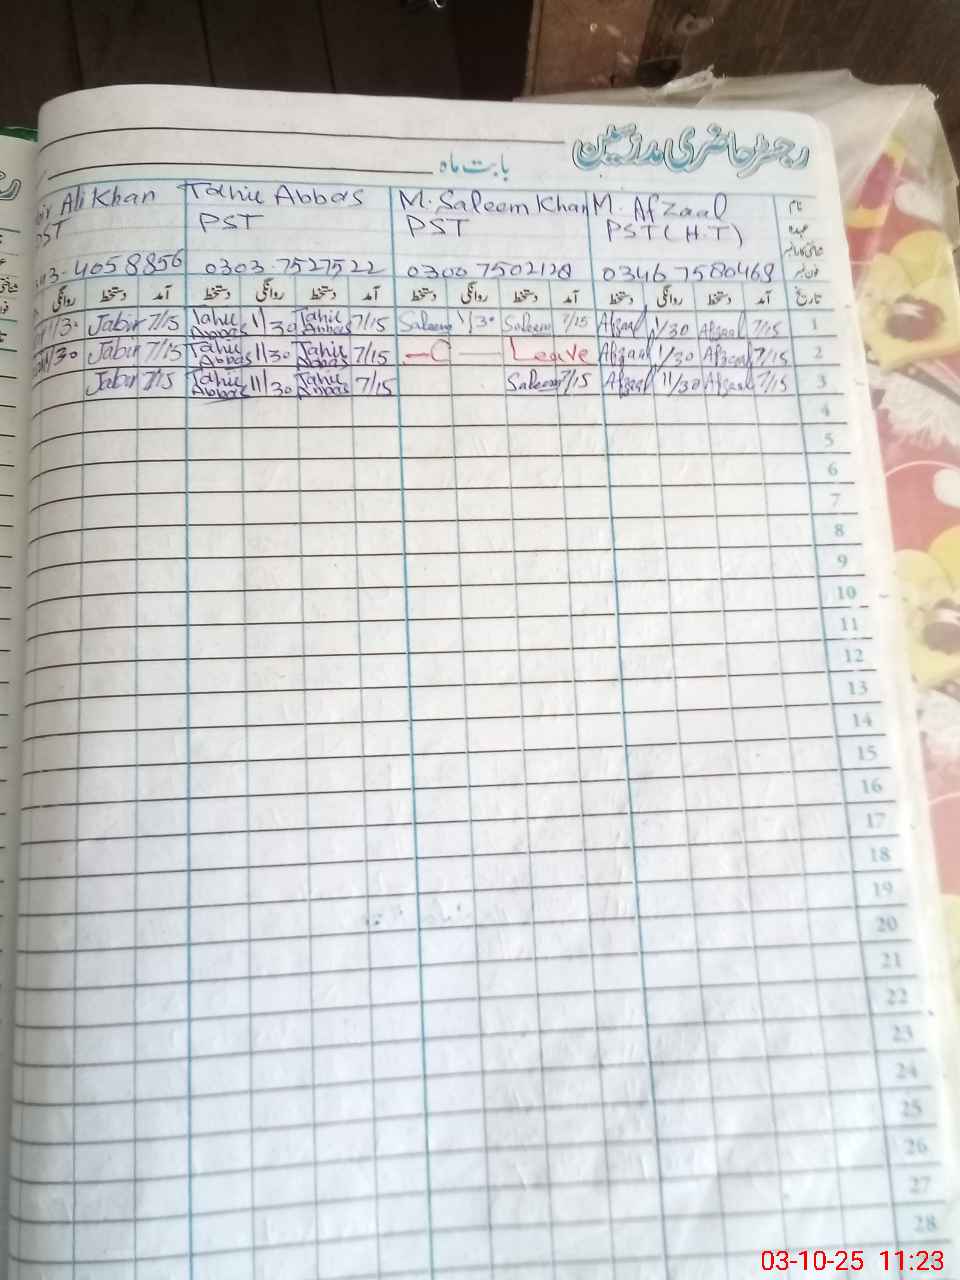 رجسٹر حاضری مدرسین
بابت ماہ
نام M. Afzaal M. Saleem Khan Tahir Abbas Ali Khan
عہدہ PST (H.T) PST PST PST
فون نمبر 0346 7580469 0300 7502128 0303-7527522 4058856
تاریخ آمد دستخط روانگی دستخط آمد دستخط روانگی دستخط آمد دستخط روانگی دستخط آمد دستخط روانگی
1 7/15 Afzaal 1/30 Afzaal 7/15 Saleem 1/30 Saleem 7/15 Tahir Abbas 11/30 Tahir Abbas 7/15 Jabir 1/30
2 7/15 Afzaal 1/30 Afzaal Leave 7/15 Tahir Abbas 11/30 Tahir Abbas 7/15 Jabir 11/30
3 7/15 Afzaal 11/30 Afzaal 7/15 Saleem 7/15 Tahir Abbas 11/30 Tahir Abbas 7/15 Jabir
4
5
6
7
8
9
10
11
12
13
14
15
16
17
18
19
20
21
22
23
24
25
26
27
28
03-10-25 11:23